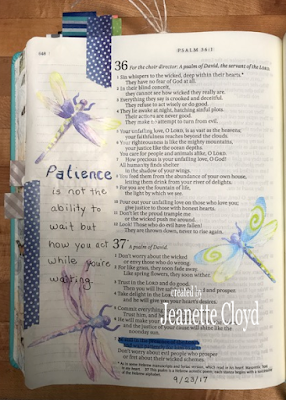 PSALM 36:1
36 For the choir director: A psalm of David, the servant of the LORD.
1 Sin whispers to the wicked, deep within their hearts.*
They have no fear of God at all.
2 In their blind conceit,
they cannot see how wicked they really are.
3 Everything they say is crooked and deceitful.
They refuse to act wisely or do good.
4 They lie awake at night, hatching sinful plots.
Their actions are never good.
They make no attempt to turn from evil.
5 Your unfailing love, O LORD, is as vast as the heavens;
your faithfulness reaches beyond the clouds.
6 Your righteousness is like the mighty mountains,
your justice like the ocean depths.
You care for people and animals alike, O LORD.
7 How precious is your unfailing love, O God!
All humanity finds shelter
in the shadow of your wings.
8 You feed them from the abundance of your own house,
letting them drink from your river of delights.
9 For you are the fountain of life,
the light by which we see.
10 Pour out your unfailing love on those who love you;
give justice to those with honest hearts.
11 Don't let the proud trample me
or the wicked push me around.
12 Look! Those who do evil have fallen!
They are thrown down, never to rise again.
37 A psalm of David.
1 Don't worry about the wicked
or envy those who do wrong.
2 For like grass, they soon fade away.
Like spring flowers, they soon wither.
3 Trust in the LORD and do good.
Then you will live safely in the land and prosper.
4 Take delight in the LORD,
and he will give you your heart's desires.
5 Commit everything
Trust him, and
6 He will make your
and the justice of your cause will shine like the
noonday sun.
Don't worry about evil people who prosper
or fret about their wicked schemes.
Patience
is not the
ability to
wait but
how you act
while you're
waiting.
created by
Jeanette Cloyd
9/23/17